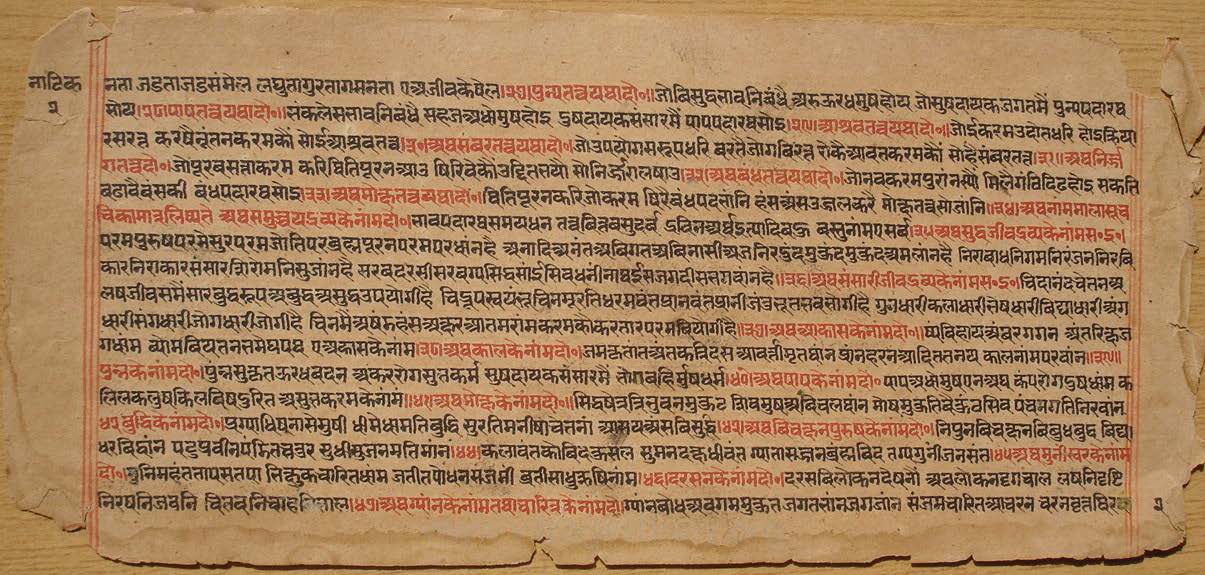 नाटिक
२
नता जडताजडसंमेल लघुतागुरतागमनता एअजीवकेषेल॥२७॥पुन्यतत्वयथादो०॥जोबिसुद्धभावनिबंधै अरुऊरधमुषहोय जोसुषदायकजगतमैं पुन्यपदारथ
सोय॥२८॥पापतत्वयथादो०॥संकलेसभावनिबंधै सहजअधोमुषहोइ दुषदायकसंसारमैं पापपदारथसोइ॥२९॥आश्रवतत्वयथादो०॥जोईकरमउदोतधरि होइक्रिया
रसरत्त करषैनूंतनकरमकौं सोईआश्रवतत्त॥३०॥अथसंवरतत्वयथादो०॥जोउपयोगसरूपधरि बरतैजोगविरत्त रोकैआवतकरमकौं सोहैसंवरतत्त॥३१॥अथनिर्ज
रातत्वदो०॥जोपूरबसत्ताकरम करिथितिपूरनआउ षिरिवेकौंउद्दितभयौ सोनिर्ज्जरालषाउ॥३२॥अथबंधतत्वयथादो०॥जोनवकरमपुरांनस्यौं मिलैगंठिदिढहोइ सकति
बढावैबंसकी बंधपदारथसोइ॥३३॥अथमोक्षतत्वयथादो०॥थितिपूरनकरिजोकरम षिरैबंधपदभांनि हंसअंसउज्जलकरै मोक्षतत्वसोजांनि॥३४॥अथनांममालासूच
निकामात्रलिष्यते अथसमुच्चयद्रव्यकेनांमदो०॥भावपदारथसमयधन तत्वबित्तबसुदर्ब द्रविनअर्थइत्यादिबहु बस्तुनांमएसर्ब॥३५॥अथसुद्धजीवद्रव्यकेनांमस०३०॥
परमपुरुषपरमेसुरपरमजोतिपरब्रह्मपूरनपरमपरधांनहै अनादिअनंतअबिगतअबिनासीअजनिरदुंदमुक्तमुकुंदअमलांनहै निराबाधनिगमनिरंजननिरबि
कारनिराकारसंसारसिरोमनिसुजांनहै सरबदरसीसरबग्यसिद्धसांईसिवधनीनाथईसजगदीसभगवांनहै॥३६॥अथसंसारीजीवद्रव्यकेनांमस०३०॥चिदानंदचेतनअ
लषजीवसमैसारबुद्धरूपअबुद्धअसुद्धउपयोगीहै चिद्रूपस्वयंभूचिनमूरतिधरमवंतप्रानवंतप्रानीजंतुभूतभवभोगीहै गुनधारीकलाधारीभेषधारीबिद्याधारीअंग
धारीसंगधारीजोगधारीजोगीहै चिनमैअषंडहंसअक्षरआतमरांमकरमकौकरतारपरमबियोगीहै॥३७॥अथआकासकेनांमदो०॥षंबिहायअंबरगगन अंतरिक्षज
गधांम ब्योमबियतनभमेघपथ एअकासकेनांम॥३८॥अथकालकेनांमदो०॥जमकृतांतअंतकत्रिदस आवर्तीमृतथांन प्रांनहरनआदिततनय कालनांमपरवांन॥३९॥
पुन्नकेनांमदो०॥पुन्नसुकृतऊरधबदन अकररोगसुभकर्म सुषदायकसंसारमैं भोगबहिर्मुषधर्म॥४०॥अथपापकेनांमदो०पापअधोमुषएनअघ कंपरोगदुषधांम क
लिलकलुषकिलबिषदुरित असुभकरमकेनांम॥४१॥अथमोक्षकेनांमदो०॥सिद्धषेत्रत्रिभुवनमुकुट शिवमुषअबिचलथांन मोषमुकतिबैकुंठसिव पंचमगतिनिरवांन
॥४२॥बुद्धिकेनांमदो०॥प्रग्याधिषनासेमुषी धीमेधामतिबुद्धि सुरतिमनीषाचेतना आसयअंसबिसुद्ध॥४३॥अथबिचक्षनपुरुषकेनांमदो०॥निपुनबिचक्षनबिबुधबुद्ध बिद्या
धरबिद्वांन पटुप्रबीनपंडितचतुर सुधीसुजनमतिमांन॥४४॥कलावंतकोबिदकुसल सुमनदक्षधीवंत ग्यातासज्जनब्रह्मबिद तग्यगुनीजनसंत॥४५॥अथमुनीस्वरकेनांम
दो०॥मुनिमहंततापसतपी भिक्षुकचारितधांम जतीतपोधनसंजमी ब्रतीसाधुऋषिनांम॥४६॥दरसनकेनांमदो०॥दरसबिलोकनदेषनौं अवलोकनदृगचाल लषनिदृष्टि
निरषनिजवनि चितवनिचाहनिभाल॥४७॥अथग्यांनकेनांमतथाचारित्रकेनांमदो०॥ग्यांनबोधअवगममुकुत जगतभांनजगजांन संजमचारितआचरन चरनवृत्तथिरवा
२